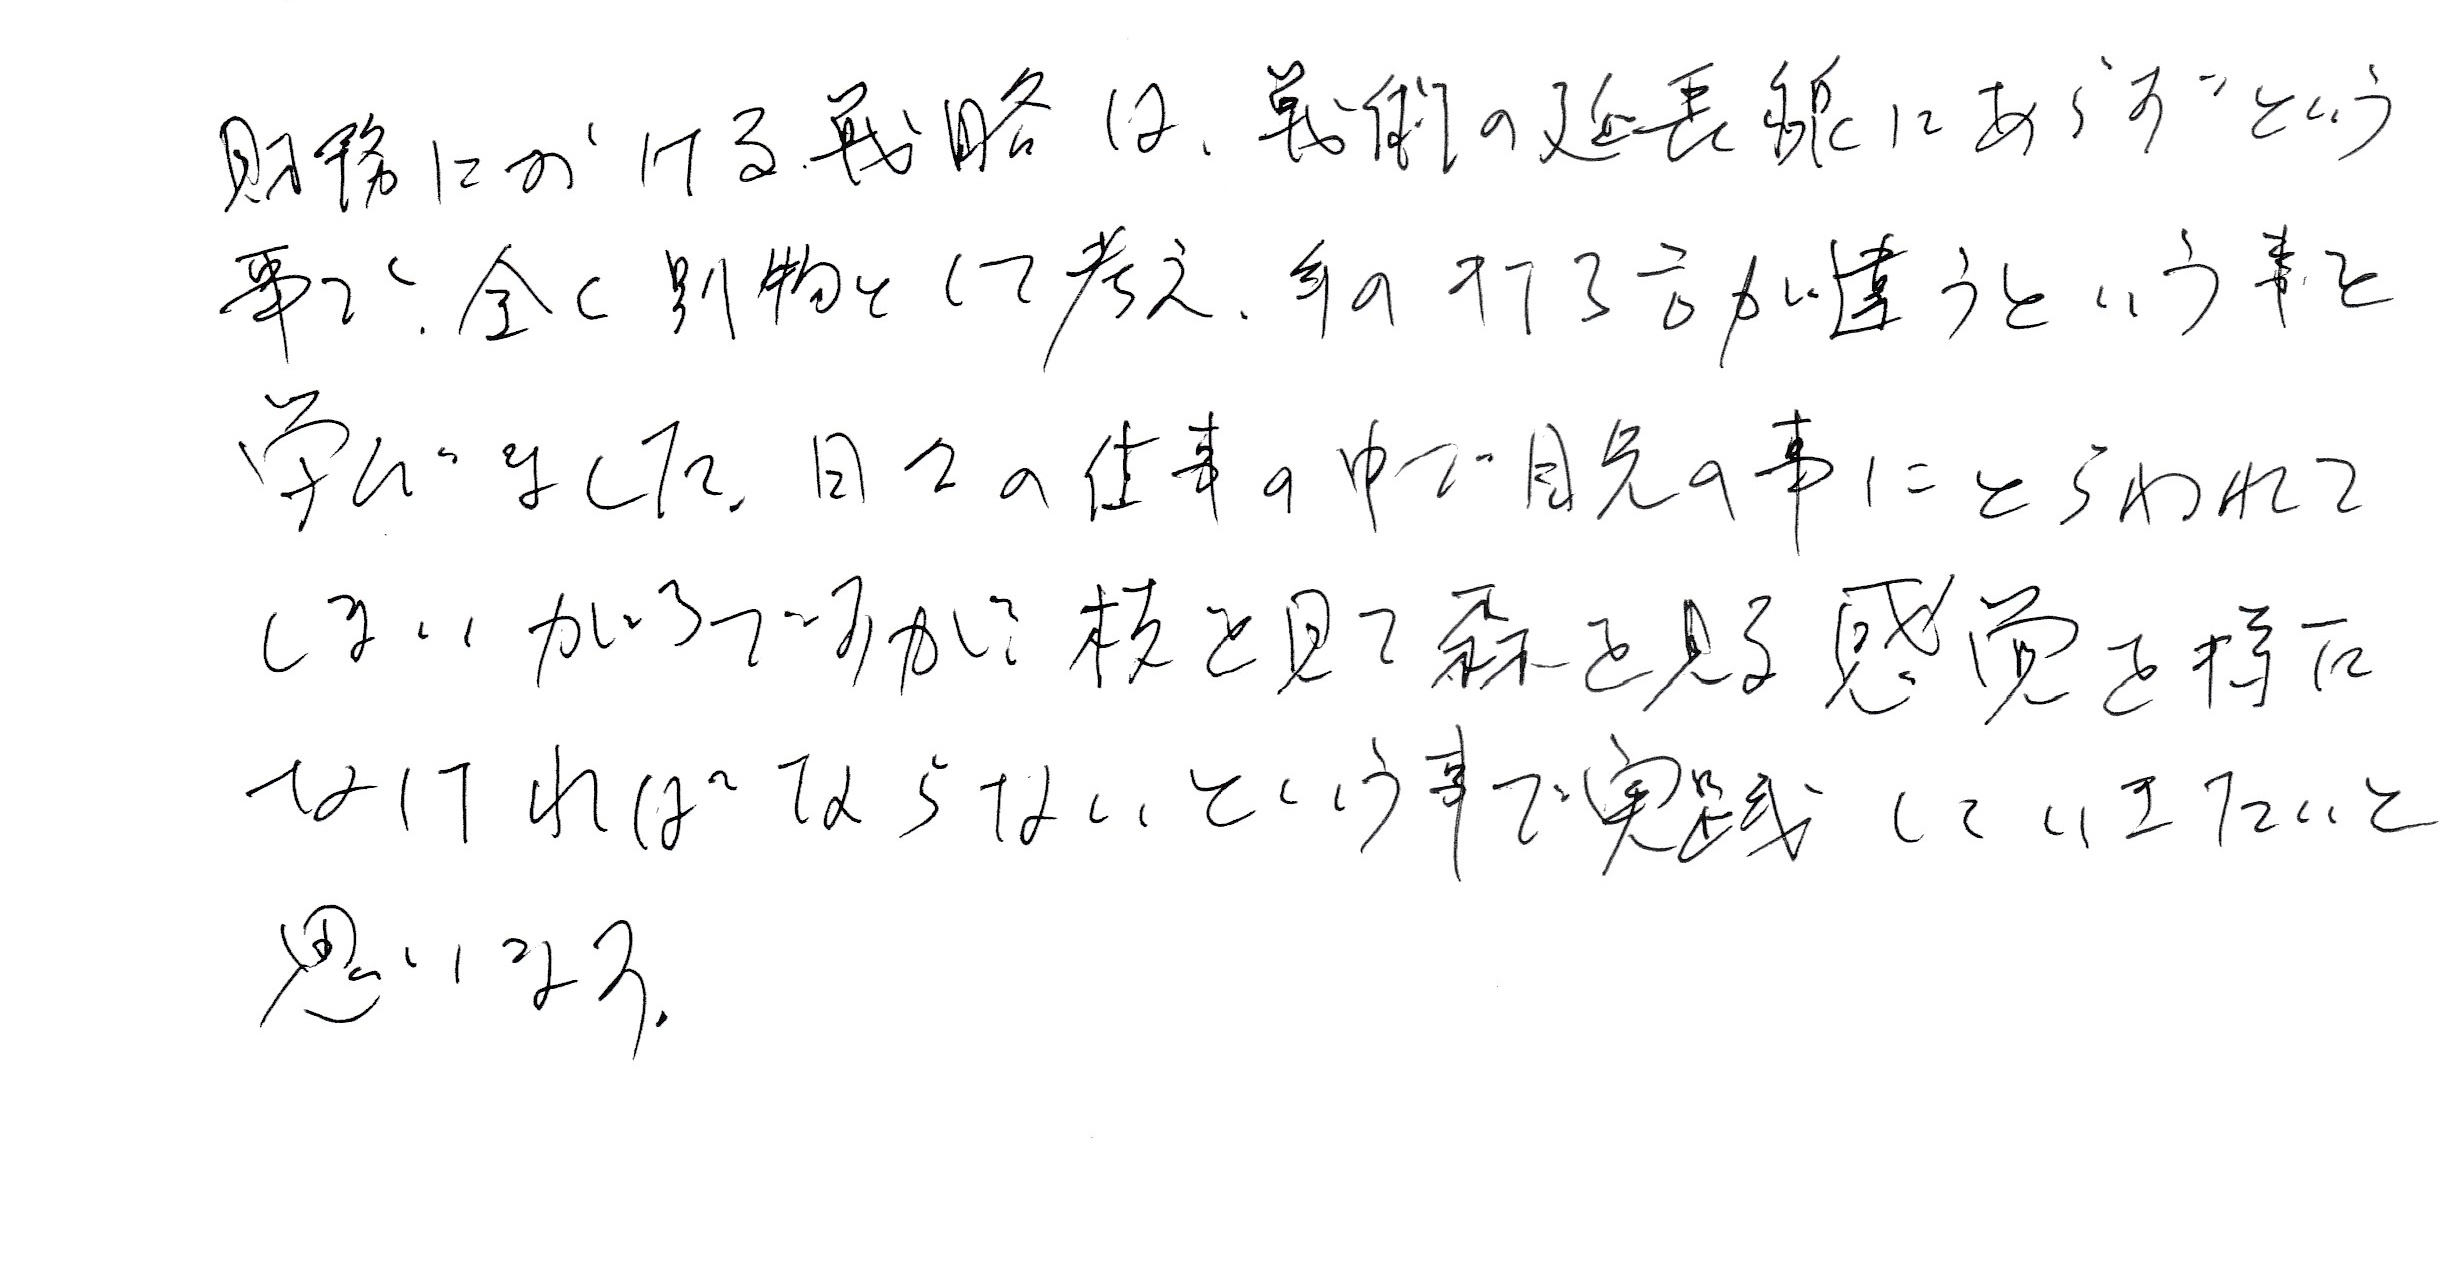 財務における戦略は、戦術の延長線にあらずという
事で、全く別物として考え、手の打る言が違うという事を
学びました。日々の仕事の中で目先の事にとらわれて
しまいがちですが、枝を見て森を見る感覚を持た
なければならないという事で実践していきたいと
思います。